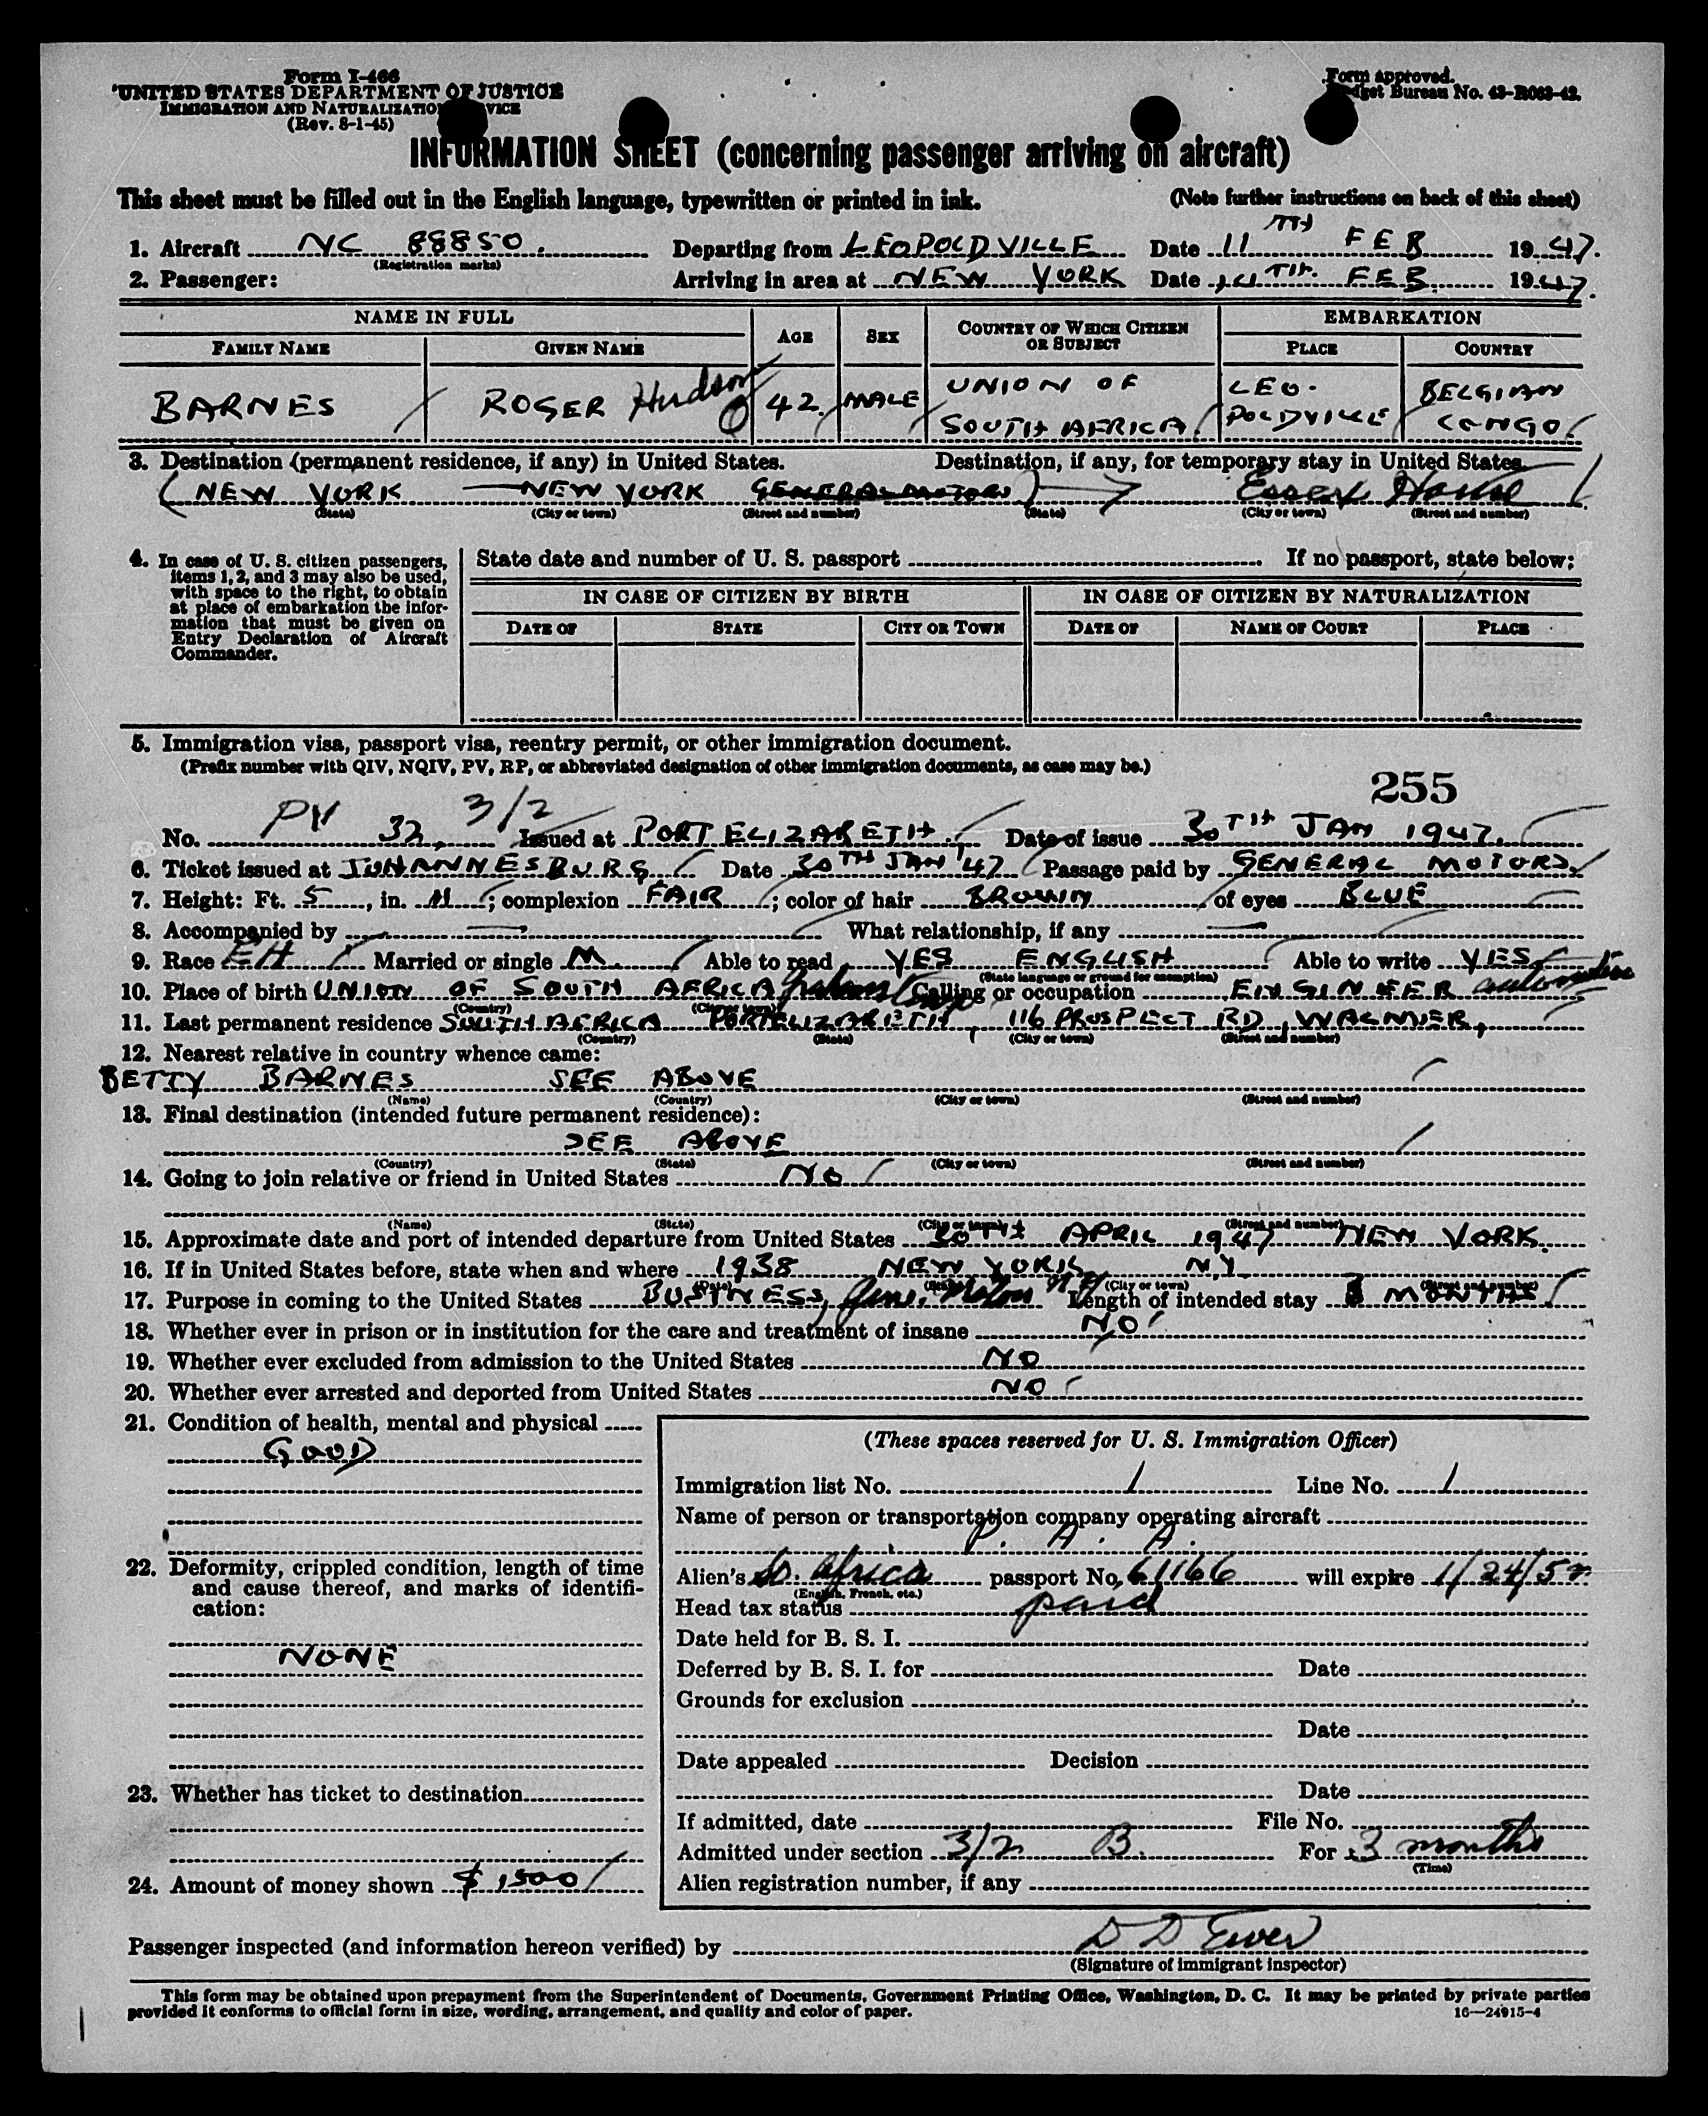 Form I-466
UNITED STATES DEPARTMENT OF JUSTICE
IMMIGRATION AND NATURALIZATION SERVICE
(Rev. 8-1-45)
Form approved.
Budget Bureau No. 43-R063-42.
INFORMATION SHEET (concerning passenger arriving on aircraft)
This sheet must be filled out in the English language, typewritten or printed in ink. (Note further instructions on back of this sheet)
1. Aircraft NC 88850. Departing from LEOPOLDVILLE Date 11TH FEB 1947.
(Registration marks)
2. Passenger: Arriving in area at NEW YORK Date 14TH. FEB. 1947.
NAME IN FULL AGE SEX COUNTRY OF WHICH CITIZEN OR SUBJECT EMBARKATION
FAMILY NAME GIVEN NAME PLACE COUNTRY
BARNES ROGER Hudson 42. MALE UNION OF SOUTH AFRICA. LEO-POLDVILLE BELGIAN CONGO.
3. Destination (permanent residence, if any) in United States. Destination, if any, for temporary stay in United States.
(NEW YORK — NEW YORK GENERAL MOTORS) Essex House
(State) (City or town) (Street and number) (State) (City or town) (Street and number)
4. In case of U. S. citizen passengers, items 1, 2, and 3 may also be used, with space to the right, to obtain at place of embarkation the information that must be given on Entry Declaration of Aircraft Commander.
State date and number of U. S. passport If no passport, state below:
IN CASE OF CITIZEN BY BIRTH IN CASE OF CITIZEN BY NATURALIZATION
DATE OF STATE CITY OR TOWN DATE OF NAME OF COURT PLACE
5. Immigration visa, passport visa, reentry permit, or other immigration document.
(Prefix number with QIV, NQIV, PV, RP, or abbreviated designation of other immigration documents, as case may be.)
255
No. PV 32, 3/2 Issued at PORT ELIZABETH. Date of issue 30TH JAN 1947.
6. Ticket issued at JOHANNESBURG Date 30TH JAN '47 Passage paid by GENERAL MOTORS.
7. Height: Ft. 5, in. 11; complexion FAIR; color of hair BROWN of eyes BLUE
8. Accompanied by — What relationship, if any —
9. Race EH Married or single M. Able to read YES ENGLISH Able to write YES
(State language or ground for exemption)
10. Place of birth UNION OF SOUTH AFRICA Grahamstown Calling or occupation ENGINEER automotive
(Country) (City or town)
11. Last permanent residence SOUTH AFRICA PORT ELIZABETH, 116 PROSPECT RD, WALMER,
(Country) (State) (City or town) (Street and number)
12. Nearest relative in country whence came:
BETTY BARNES SEE ABOVE
(Name) (Country) (City or town) (Street and number)
13. Final destination (intended future permanent residence):
SEE ABOVE
(Country) (State) (City or town) (Street and number)
14. Going to join relative or friend in United States NO
(Name) (State) (City or town) (Street and number)
15. Approximate date and port of intended departure from United States 30TH APRIL 1947 NEW YORK.
16. If in United States before, state when and where 1938 NEW YORK N.Y
(Date) (State) (City or town) (Street and number)
17. Purpose in coming to the United States BUSINESS, Gen. Motors NY Length of intended stay 3 MONTHS
18. Whether ever in prison or in institution for the care and treatment of insane NO
19. Whether ever excluded from admission to the United States NO
20. Whether ever arrested and deported from United States NO
21. Condition of health, mental and physical
GOOD
22. Deformity, crippled condition, length of time and cause thereof, and marks of identification:
NONE
23. Whether has ticket to destination
24. Amount of money shown $ 1500
(These spaces reserved for U. S. Immigration Officer)
Immigration list No. 1 Line No. 1
Name of person or transportation company operating aircraft
P. A. A.
Alien's So. Africa passport No. 61166 will expire 1/24/52
(English, French, etc.)
Head tax status paid
Date held for B. S. I.
Deferred by B. S. I. for Date
Grounds for exclusion
Date
Date appealed Decision
Date
If admitted, date File No.
Admitted under section 3/2 B. For 3 months
(Time)
Alien registration number, if any
Passenger inspected (and information hereon verified) by D D Ewer
(Signature of immigrant inspector)
This form may be obtained upon prepayment from the Superintendent of Documents, Government Printing Office, Washington, D. C. It may be printed by private parties
provided it conforms to official form in size, wording, arrangement, and quality and color of paper. 16—24915-4